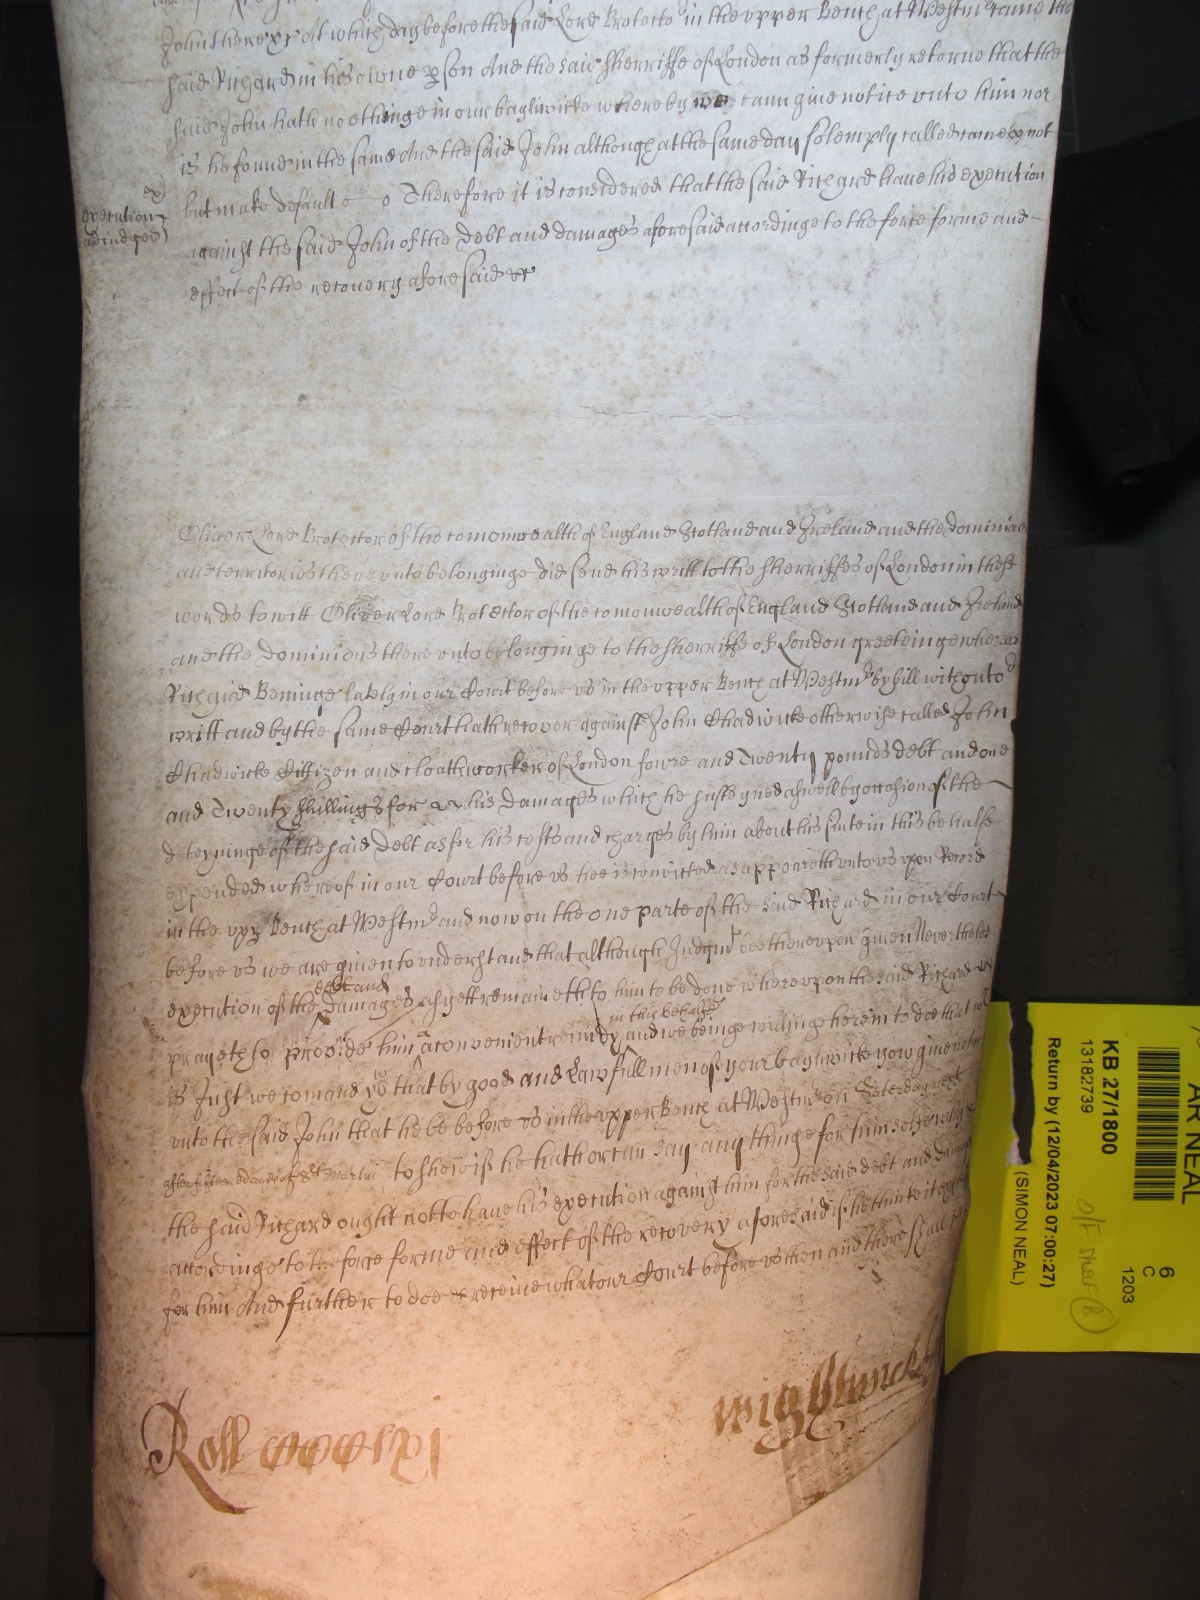 John there &c At which day before the said Lord Protector in the upper Bench at Westmr came the
said Richard in his owne pson And the said Sherriffe of London as formerly retorne that the
said John hath noethinge in our bayliwicke whereby we cann give notice unto him nor
is he found in the same And the said John although at the same day solemply called came not
but make default Therefore it is considered that the said Richard have his execution
execution
adiudged
against the said John of the debt and damages aforesaid accordinge to the force forme and
effect of the recovery aforesaid &c
Oliver Lord Protector of the comonwealth of England Scotland and Ireland and the dominions
and territories thereunto belonginge did send his writt to the Sherriffes of London in these
words to witt Oliver Lord Protector of the comonwealth of England Scotland and Ireland
and the dominions thereunto belonginge to the Sherriffe of London greetinge whereas
Richard Beninge lately in our Court before us in the upper Bench at Westmr by bill without o
writt and by the same Court hath recover against John Chadwicke otherwise called John
Chadwicke Cittizen and cloathworker of London foure and Twenty pounds debt and one
and Twenty shillings for his damages which he susteyned aswell by occasion of the
deteyninge of the said debt as for his costs and charges by him about his suite in this behalfe
expended whereof in our Court before us hee is convicted as appeareth unto us upon Record
in the upp Bench at Westmr and now on the one parte of the said Richard in our Court
before us we are given to understand that although Judgmt bee thereupon given Nevertheles
execution of the debt and damages as yett remaineth to him to be done whereupon the said Richard
prayeth to provide him a convenient remidy in this behalfe and we beinge willinge herein to doe that
is Just we comand yo that by good and Lawfull men of your bayliwicke you give notice
unto the said John that he be before us in the upper Bench at Westmr on Saterday next
after fifteene dayes of St Martin to shew if he hath or can say any thinge for himselfe why
the said Richard ought not to have his execution against him for the said debt and damages
accordinge to the force forme and effect of the recovery aforesaid if he thinke it
for him And further to doe & receive what our Court before us then and there shall
Roll
AR NEAL
6
C
1203
KB 27/1800
13182739
Return by (12/04/2023 07:00:27)
(SIMON NEAL)